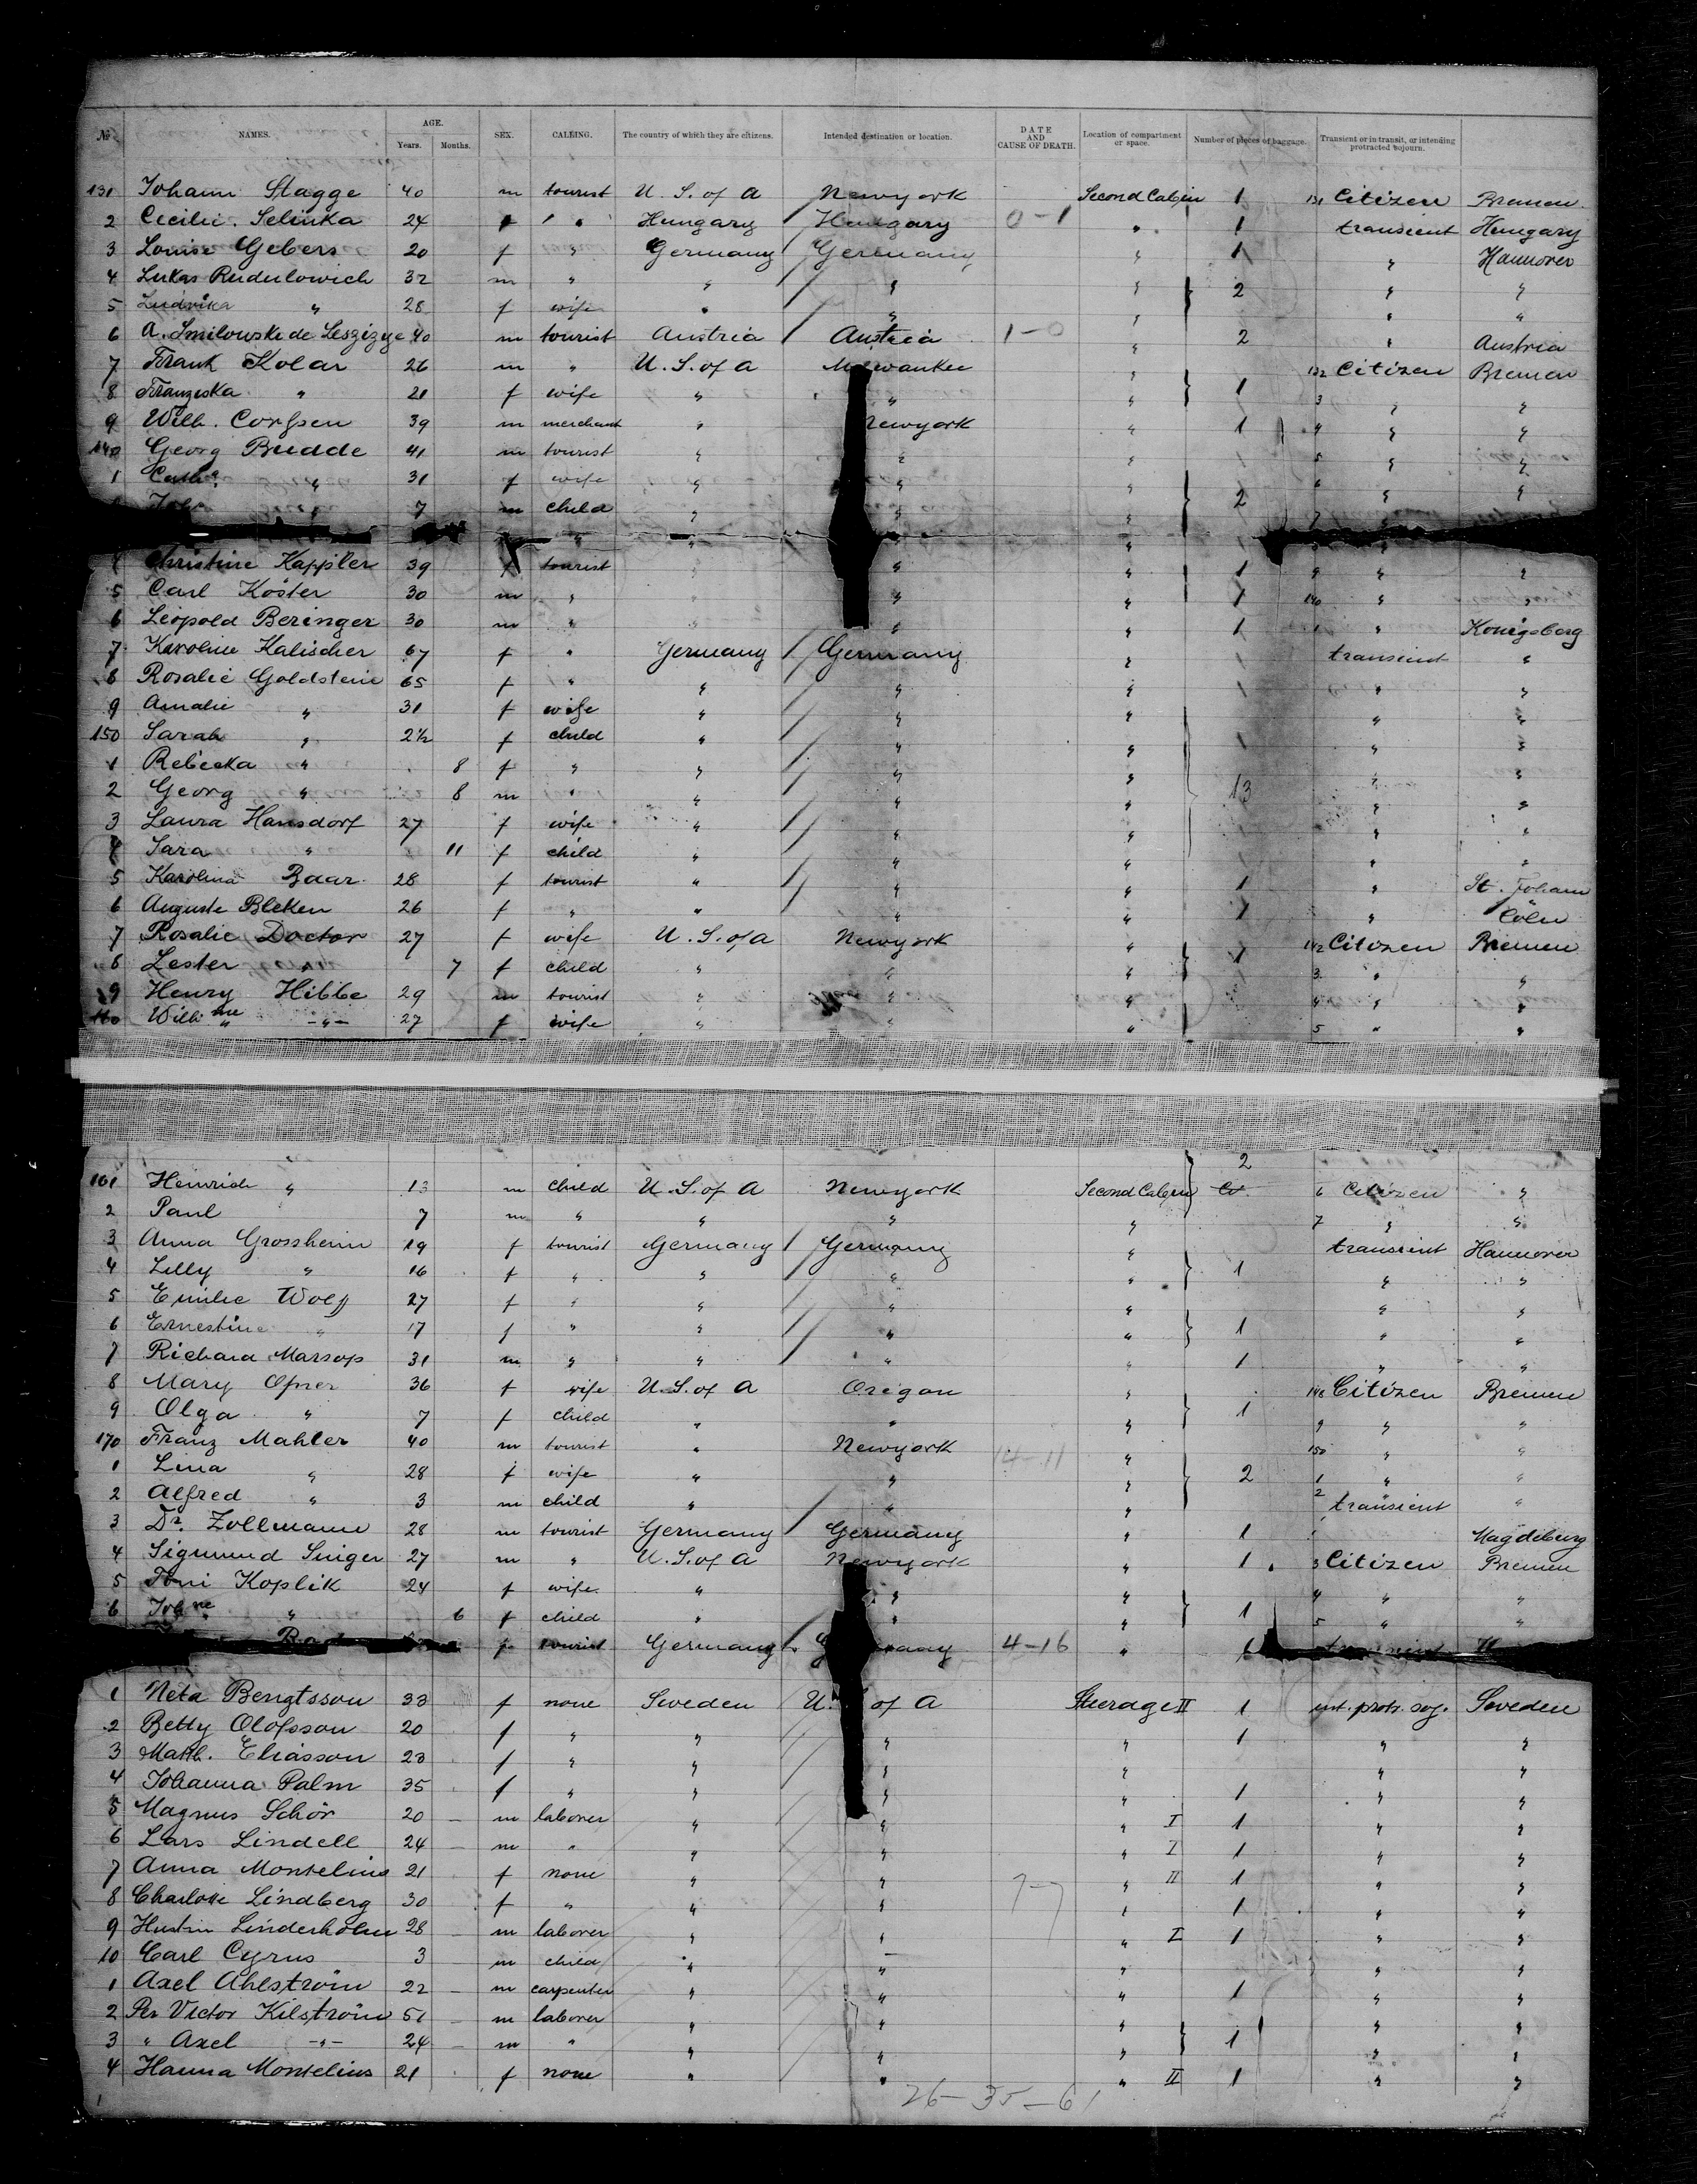 № NAMES. AGE. Years. Months. SEX. CALLING. The country of which they are citizens. Intended destination or location. DATE AND CAUSE OF DEATH. Location of compartment or space. Number of pieces of baggage. Transient or in transit, or intending protracted sojourn.
131 Johann Stagge 40 m tourist U. S. of A Newyork Second Cabin 1 131 Citizen Bremen
2 Cecilie Selinka 24 f " Hungary Hungary 0-1 " 1 transient Hungary
3 Louise Gebers 20 f " Germany Germany " 1 " Hannover
4 Lukas Rudulowich 32 m " " " " 2 " "
5 Ludvika " 28 f wife " " " " "
6 A. Smilowski de Leszizye 40 m tourist Austria Austria 1-0 " 2 " Austria
7 Frank Kolar 26 m " U. S. of A Milwaukee " 1 132 Citizen Bremen
8 Franziska " 21 f wife " " " 3 " "
9 Wilh. Corssen 39 m merchant " Newyork " 1 4 " "
140 Georg Budde 41 m tourist " " " 5 " "
1 Cath. " 31 f wife " " " 2 6 " "
7 m child " " " 7 "
Christine Kappler 39 f tourist " " " 1 9 " "
5 Carl Köster 30 m " " " " 1 140 " "
6 Leopold Beringer 30 m " " " " 1 1 " Königsberg
7 Karoline Kalischer 67 f " Germany Germany " transient "
8 Rosalie Goldstein 65 f " " " " " "
9 Amalie " 31 f wife " " " " "
150 Sarah " 2½ f child " " " " "
1 Rebecka " 8 f " " " " " "
2 Georg " 8 m " " " " 13 " "
3 Laura Hansdorf 27 f wife " " " " "
4 Sara " 11 f child " " " " "
5 Karolina Baar 28 f tourist " " " 1 " St. Johann
6 Auguste Bleken 26 f " " " " 1 " Cöln
7 Rosalie Doctor 27 f wife U. S. of A Newyork " 1 142 Citizen Bremen
8 Lester " 7 f child " " " 3 " "
9 Henry Hibbe 29 m tourist " " " 4 " "
160 Wilhme " 27 f wife " " " 5 " "
2
161 Heinrich " 13 m child U. S. of A Newyork Second Cabin 6 Citizen "
2 Paul 7 m " " " " 7 " "
3 Anna Grossheim 19 f tourist Germany Germany " transient Hannover
4 Lilly " 16 f " " " " 1 " "
5 Emilie Wolff 27 f " " " " " "
6 Ernestine " 17 f " " " " 1 " "
7 Richard Marsop 31 m " " " " 1 " "
8 Mary Ofner 36 f wife U. S. of A Oregon " 148 Citizen Bremen
9 Olga " 7 f child " " " 1 9 " "
170 Franz Mahler 40 m tourist " Newyork 14-11 " 150 " "
1 Lina " 28 f wife " " " 2 1 " "
2 Alfred " 3 m child " " " 2 transient "
3 Dr. Zollmann 28 m tourist Germany Germany " 1 Magdeburg
4 Sigmund Singer 27 m " U. S. of A Newyork " 1 3 Citizen Bremen
5 Toni Koplik 24 f wife " " " 4 " "
6 Johne " 6 f child " " " 1 5 " "
f tourist Germany Germany 4-16 " 1 transient
1 Neta Bengtsson 33 f none Sweden U. S. of A Steerage II 1 int. protr. soj. Sweden
2 Betty Olofsson 20 f " " " " 1 " "
3 Math. Eliasson 23 f " " " " " "
4 Johanna Palm 35 f " " " " 1 " "
5 Magnus Schör 20 m laborer " " " I 1 " "
6 Lars Lindell 24 m " " " " I 1 " "
7 Anna Montelius 21 f none " " " II 1 " "
8 Charlotte Lindberg 30 f " " " 7-7 " 1 " "
9 Hustin Linderholm 28 m laborer " " " I 1 " "
10 Carl Cyrus 3 m child " " " " "
1 Axel Ahlström 22 m carpenter " " " 1 " "
2 Per Victor Kilström 51 m laborer " " " " "
3 " Axel " 24 m " " " " 1 " "
4 Hanna Montelius 21 f none " " " II 1 " "
26-35-61